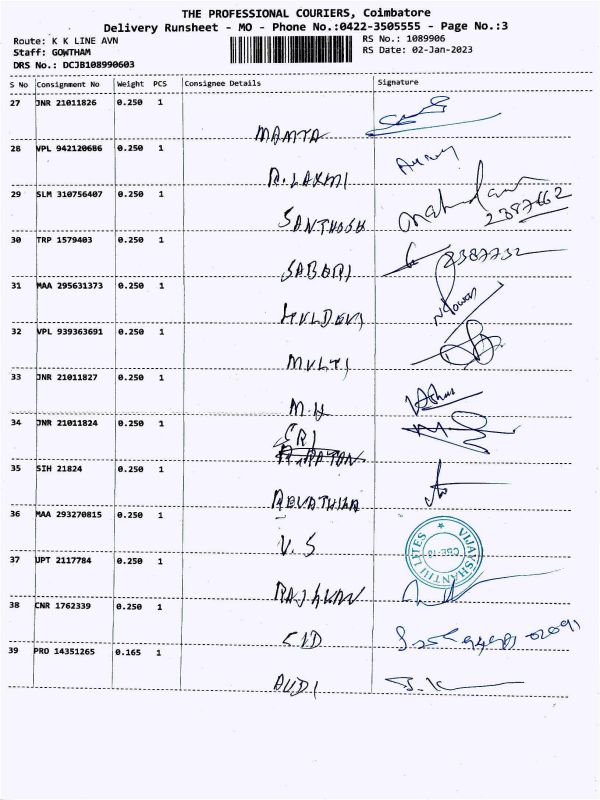 THE PROFESSIONAL COURIERS, Coimbatore
Delivery Runsheet - MO - Phone No.:0422-3505555 - Page No.:3
Route: K K LINE AVN
RS No.: 1089906
Staff: GOWTHAM
RS Date: 02-Jan-2023
DRS No.: DCJB108990603
S No Consignment No Weight PCS Consignee Details Signature
27 JNR 21011826 0.250 1
MAMTA
28 VPL 942120686 0.250 1
A. LAXMI
29 SLM 310756407 0.250 1
SANTHOSH 2387662
30 TRP 1579403 0.250 1
SABARI 2387732
31 MAA 295631373 0.250 1
32 VPL 939363691 0.250 1
MULTI
33 JNR 21011827 0.250 1
M.H
34 JNR 21011824 0.250 1
SRI
35 SIH 21824 0.250 1
36 MAA 293270815 0.250 1
V. S
VIJAYSHANTHI LITES
37 UPT 2117784 0.250 1
38 CNR 1762339 0.250 1
CID
39 PRO 14351265 0.165 1
AUDI